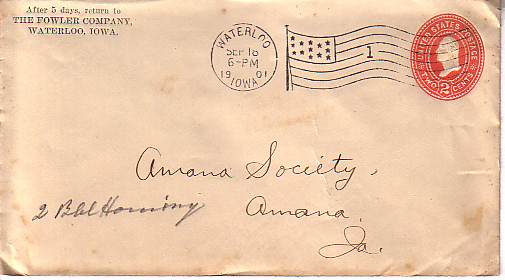 After 5 days, return to
THE FOWLER COMPANY,
WATERLOO, IOWA.
WATERLOO
SEP 18
6-PM
1901
IOWA
1
UNITED STATES POSTAGE
TWO 2 CENTS
Amana Society,
2 Bbl Hominy
Amana.
Ia.